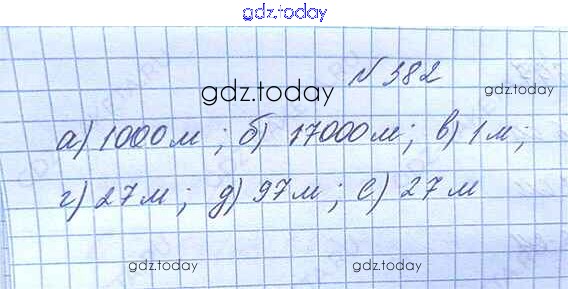 gdz.today
№ 382
gdz.today
gdz.today
а) 1000 м ; б) 17000 м ; в) 1 м ;
г) 27 м ; д) 97 м ; е) 27 м
gdz.today
gdz.today